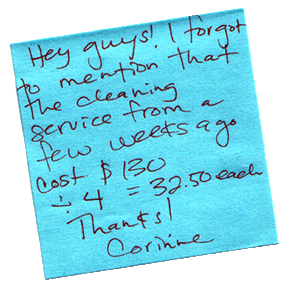 Hey guys! I forgot
to mention that
the cleaning
service from a
few weeks ago
cost $130
÷ 4 = 32.50 each
Thanks!
Corinne